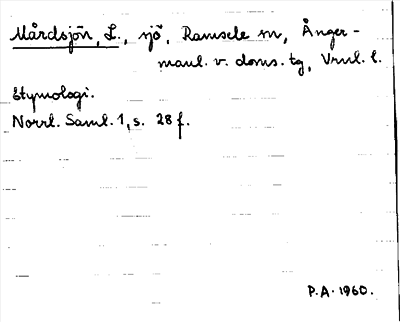 Mårdsjön, L., sjö, Ramsele sn, Ånger-
manl. v. doms. tg, Vrnl. l.
Etymologi.
Norrl. Saml. 1, s. 28 f.
P.A. 1960.